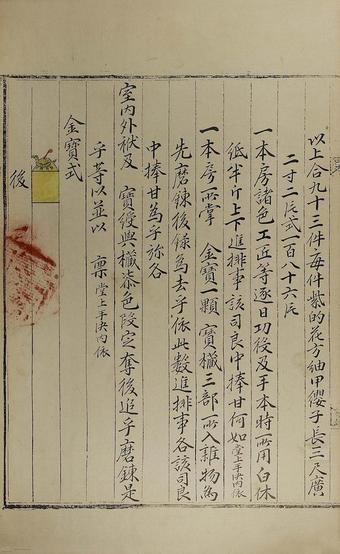 以上合九十三件每件紫的花方紬甲纓子長三尺廣
二寸二片式一百八十六片
一本房諸色工匠等逐日功役及手本時所用白休
紙半斤上下進排事該司良中捧甘何如堂上手决內依
一本房所掌　金寶一顆　寶櫼三部所入雜物爲
先磨鍊後錄爲去乎依此數進排事各該司良
中捧甘爲乎旀各
室內外袱及　寶綬與櫼漆色段定奪後追乎磨鍊是
乎等以並以　稟堂上手决內依
金寶式
後